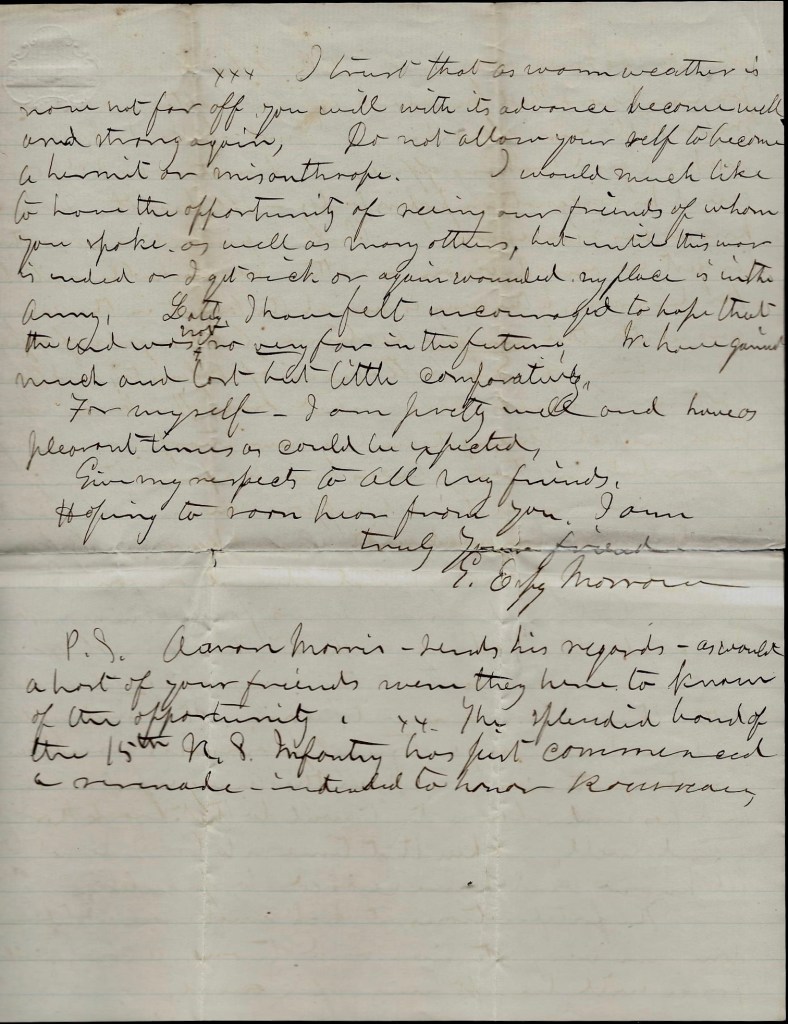 xxx I trust that as warm weather is
now not far off you will with its advance become well
and strong again, Do not allow your self to become
a hermit or misanthrope. I would much like
to have the opportunity of seeing our friends of whom
you spoke as well as many others, but until this war
is ended or I get sick or again wounded my place is in the
Army. Lately I have felt encouraged to hope that
not
the end was so very far in the future, We have gained
much and lost but little comparatively.
For myself - I am pretty well and have as
pleasant times as could be expected,
Give my respects to all my friends.
Hoping to soon hear from you. I am
truly your friend
E. Espy Morrow
P.S. Aaron Morris - sends his regards - as would
a host of your friends were they here to know
of the opportunity. xx. The splendid band of
the 15th U.S. Infantry has just commenced
a serenade - intended to honor Rousseau,